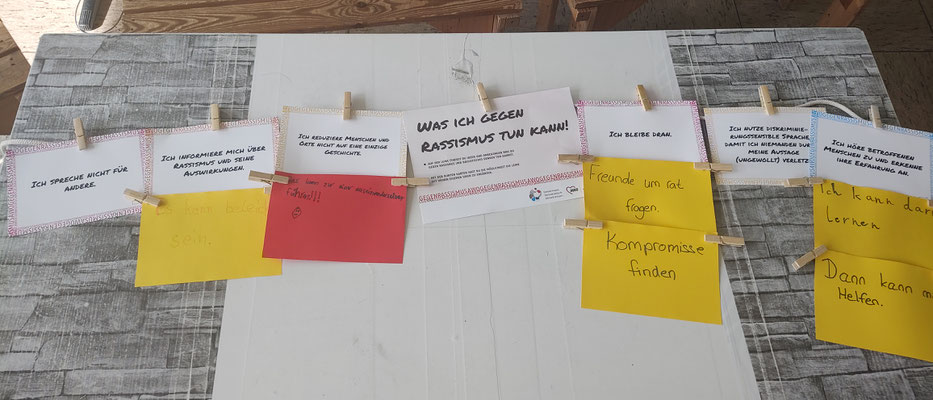 Ich spreche nicht für
andere.
Ich informiere mich über
Rassismus und seine
Auswirkungen.
Es kann beleid
sein.
Ich reduziere Menschen und
Orte nicht auf eine einzige
Geschichte.
zu einer
führen!!!
Was ich gegen
Rassismus tun kann!
Ich bleibe dran.
Freunde um rat
fragen.
Kompromisse
finden
Ich nutze diskriminie-
rungssensible Sprache
damit ich niemanden dur
meine Aussage
(ungewollt) verletz
Ich höre betroffenen
Menschen zu und erkenne
ihre Erfahrung an.
Ich kann dar
lernen
Dann kann m
Helfen.